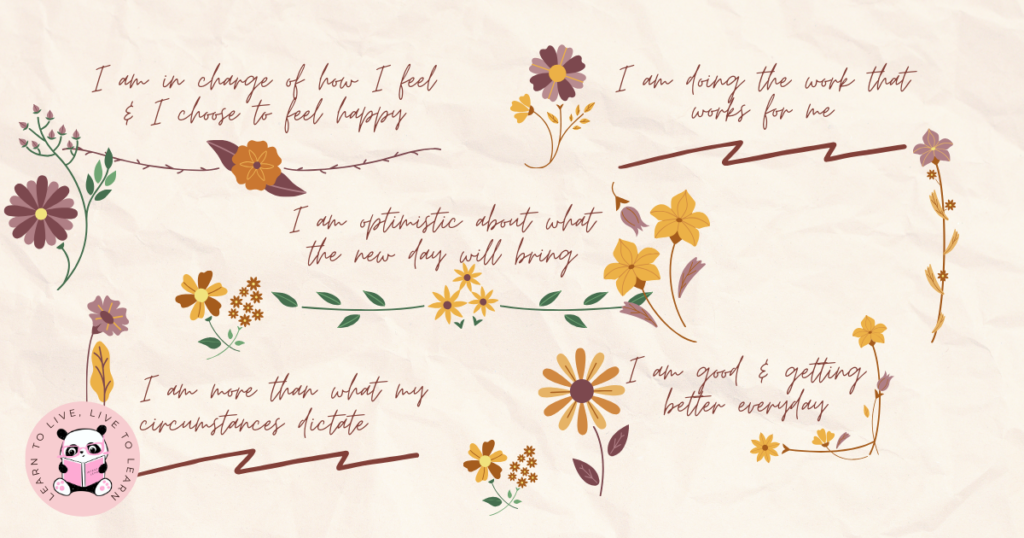 I am in charge of how I feel
& I choose to feel happy
I am doing the work that
works for me
I am optimistic about what
the new day will bring
I am more than what my
circumstances dictate
I am good & getting
better everyday
LEARN TO LIVE, LIVE TO LEARN